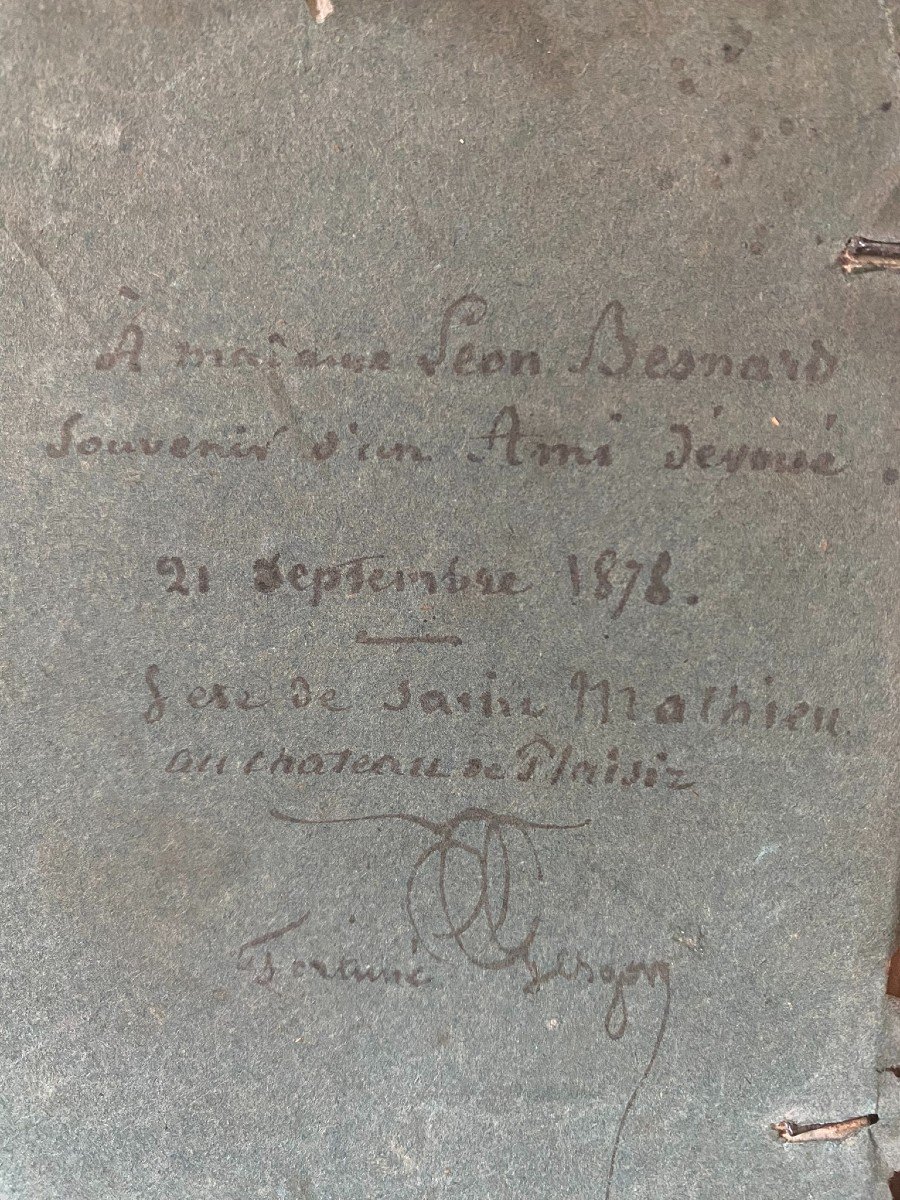 À madame Léon Besnard
Souvenir d'un Ami dévoué.
21 Septembre 1878.
de Saint Mathieu
au chateau de Plaisir
Fortuné